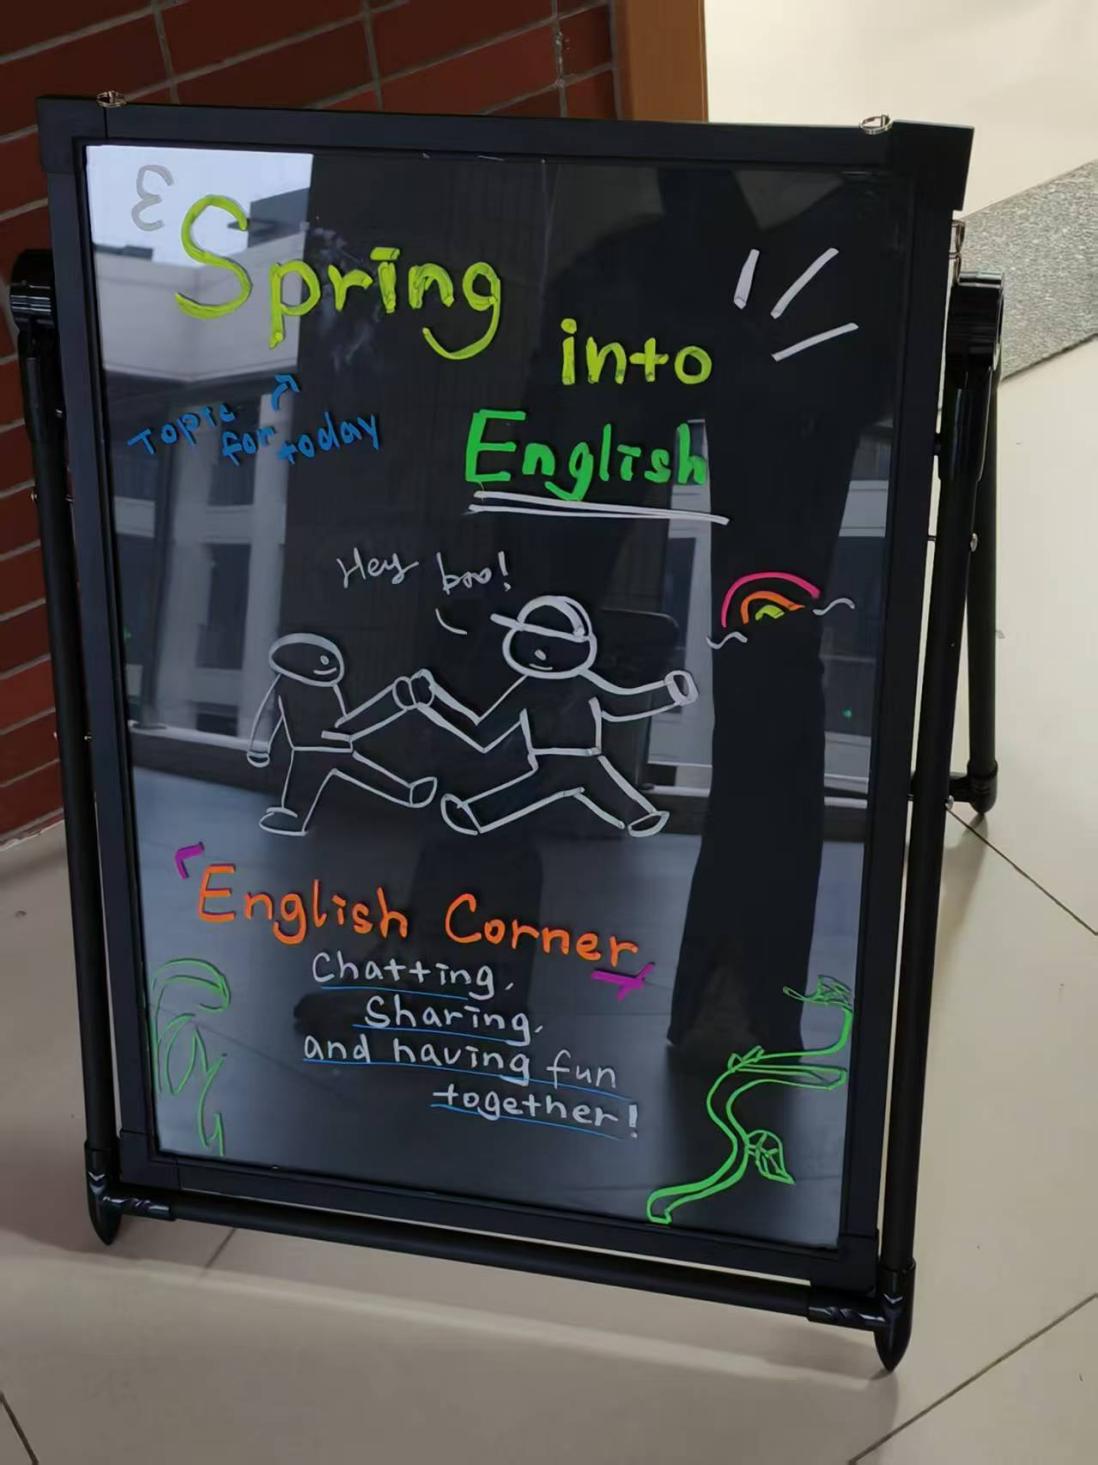 Spring
into
English
Topic
for today
Hey bro!
「English Corner」
Chatting,
Sharing,
and having fun
together!